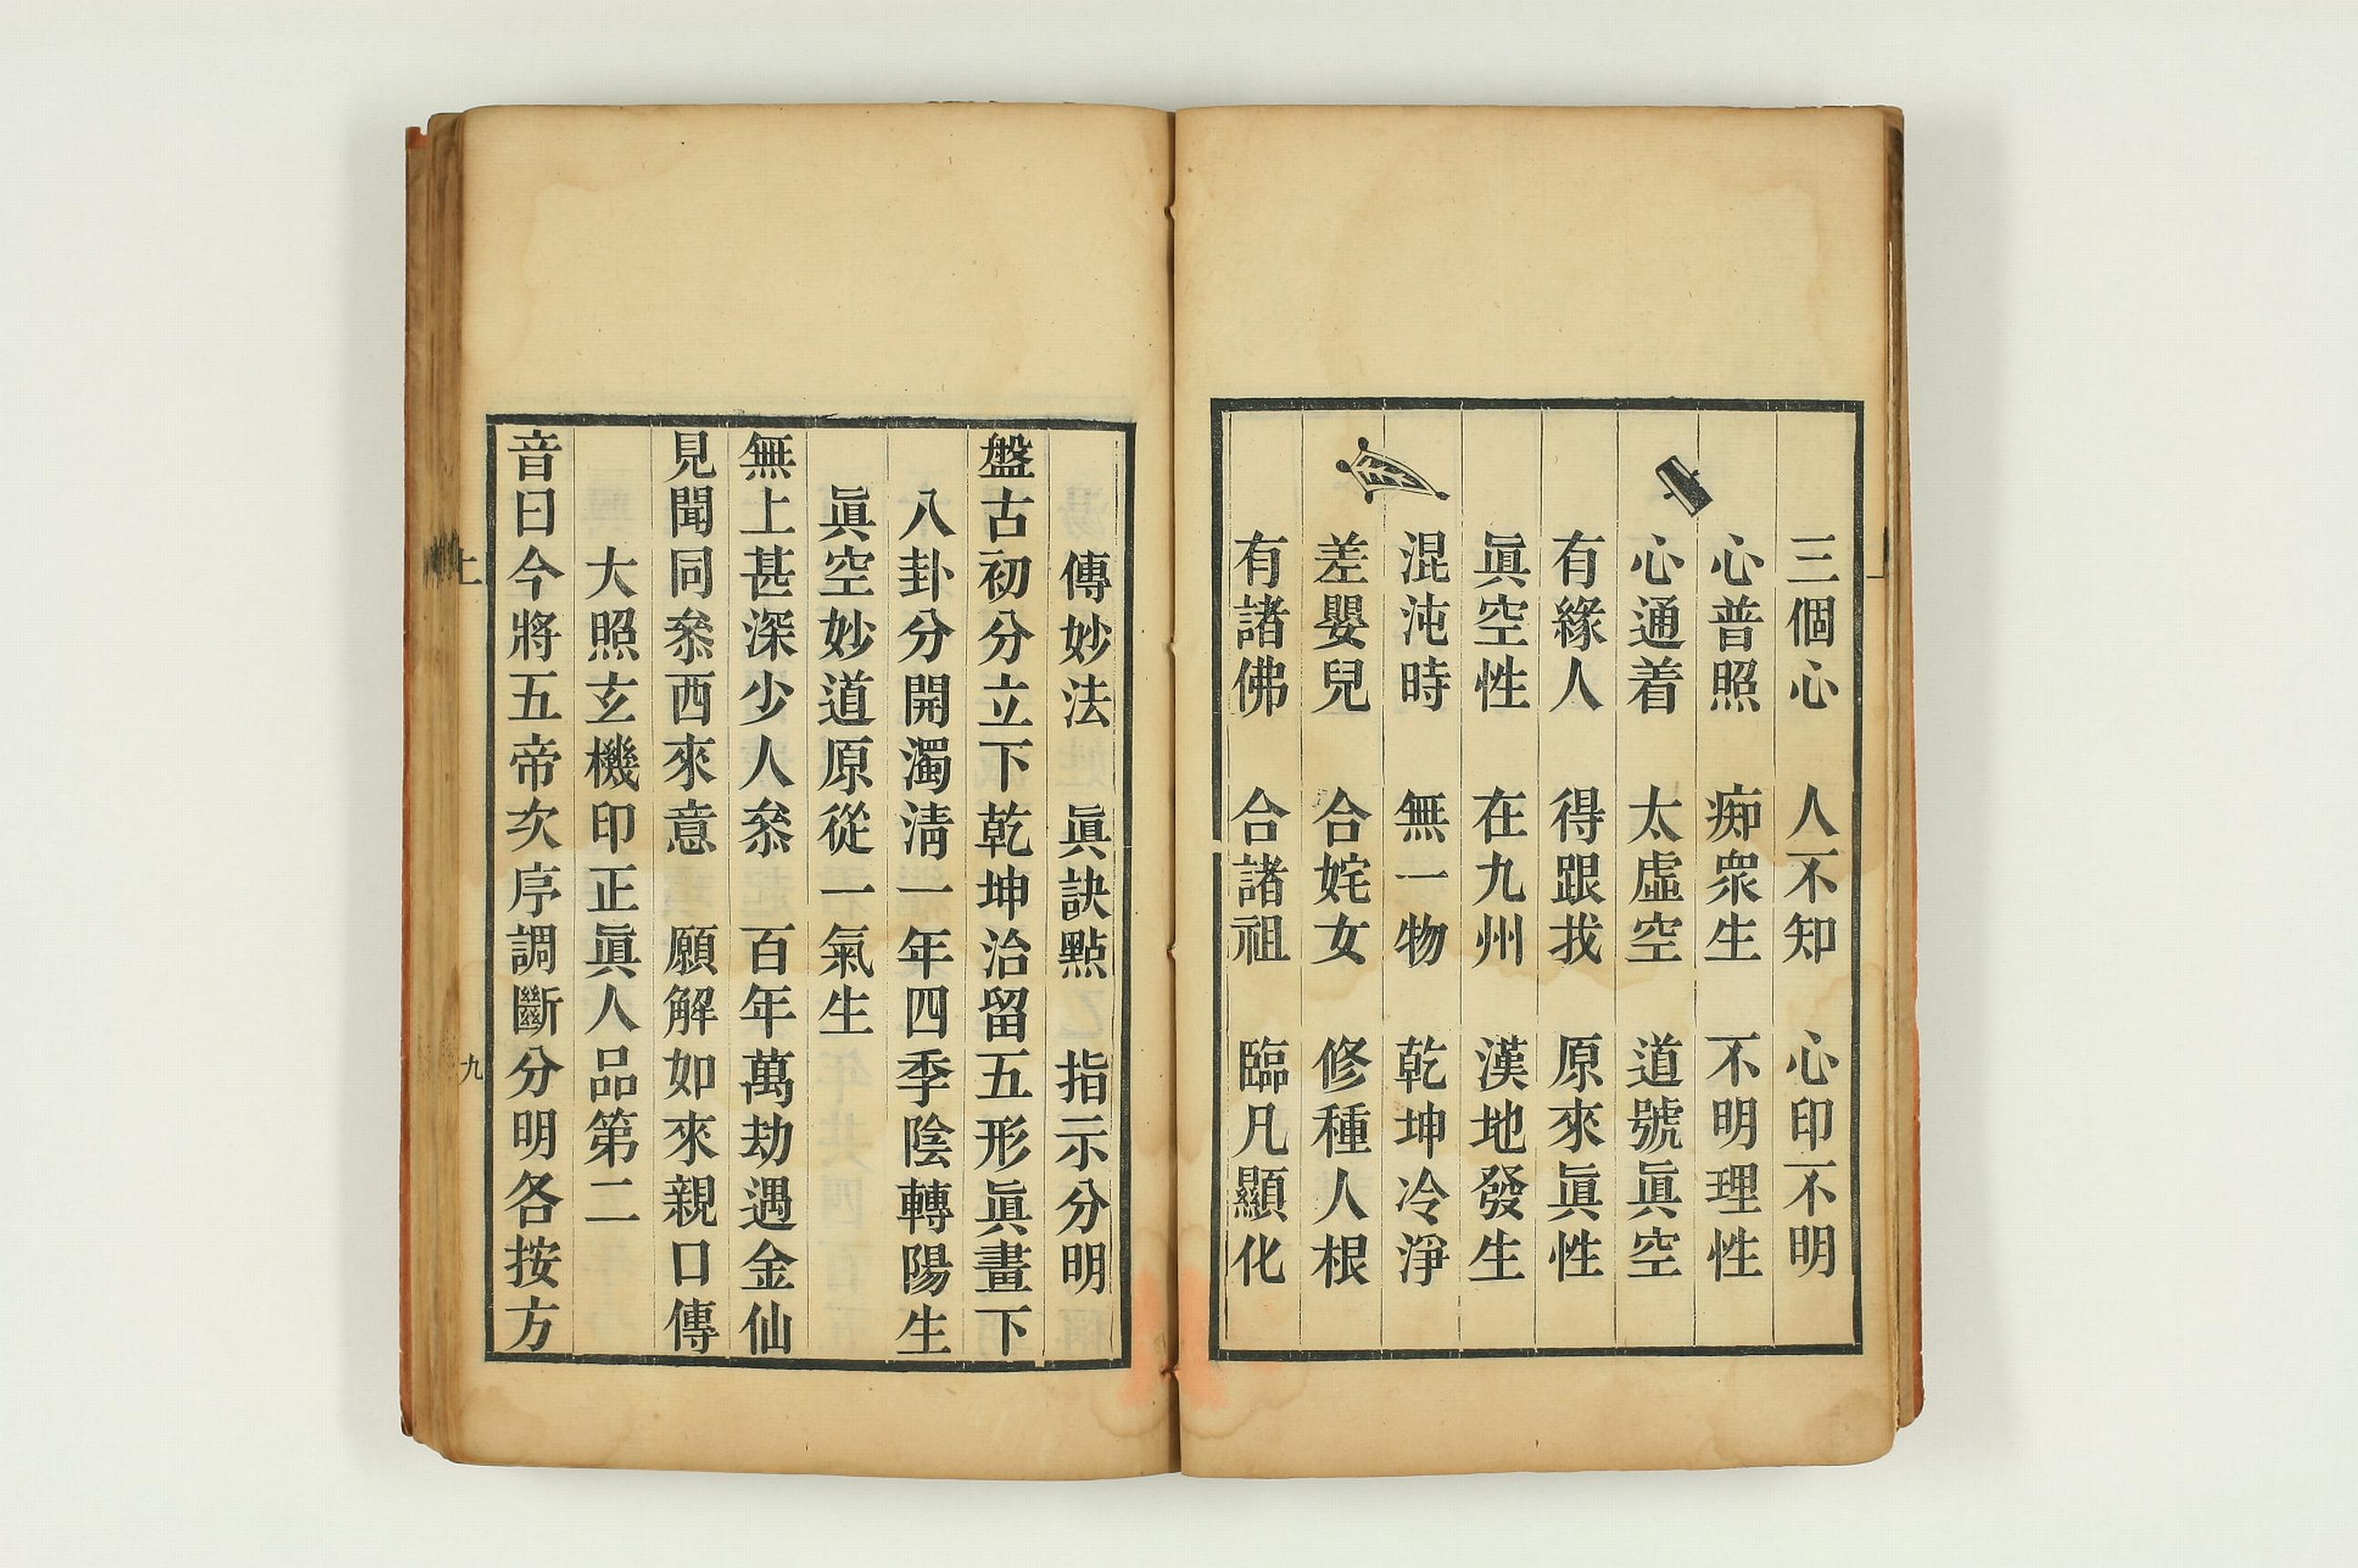 三個心　人不知　心印不明
心普照　痴衆生　不明理性
心通着　太虛空　道號眞空
有緣人　得跟找　原來眞性
眞空性　在九州　漢地發生
混沌時　無一物　乾坤冷淨
差嬰兒　合姹女　修種人根
有諸佛　合諸祖　臨凡顯化
傳妙法　眞訣點　指示分明
盤古初分立下乾坤治留五形眞畫下
八卦分開濁清一年四季陰轉陽生
眞空妙道原從一氣生
無上甚深少人叅　百年萬劫遇金仙
見聞同叅西來意　願解如來親口傳
大照玄機印正眞人品第二
音曰今將五帝次序調斷分明各按方
上
九